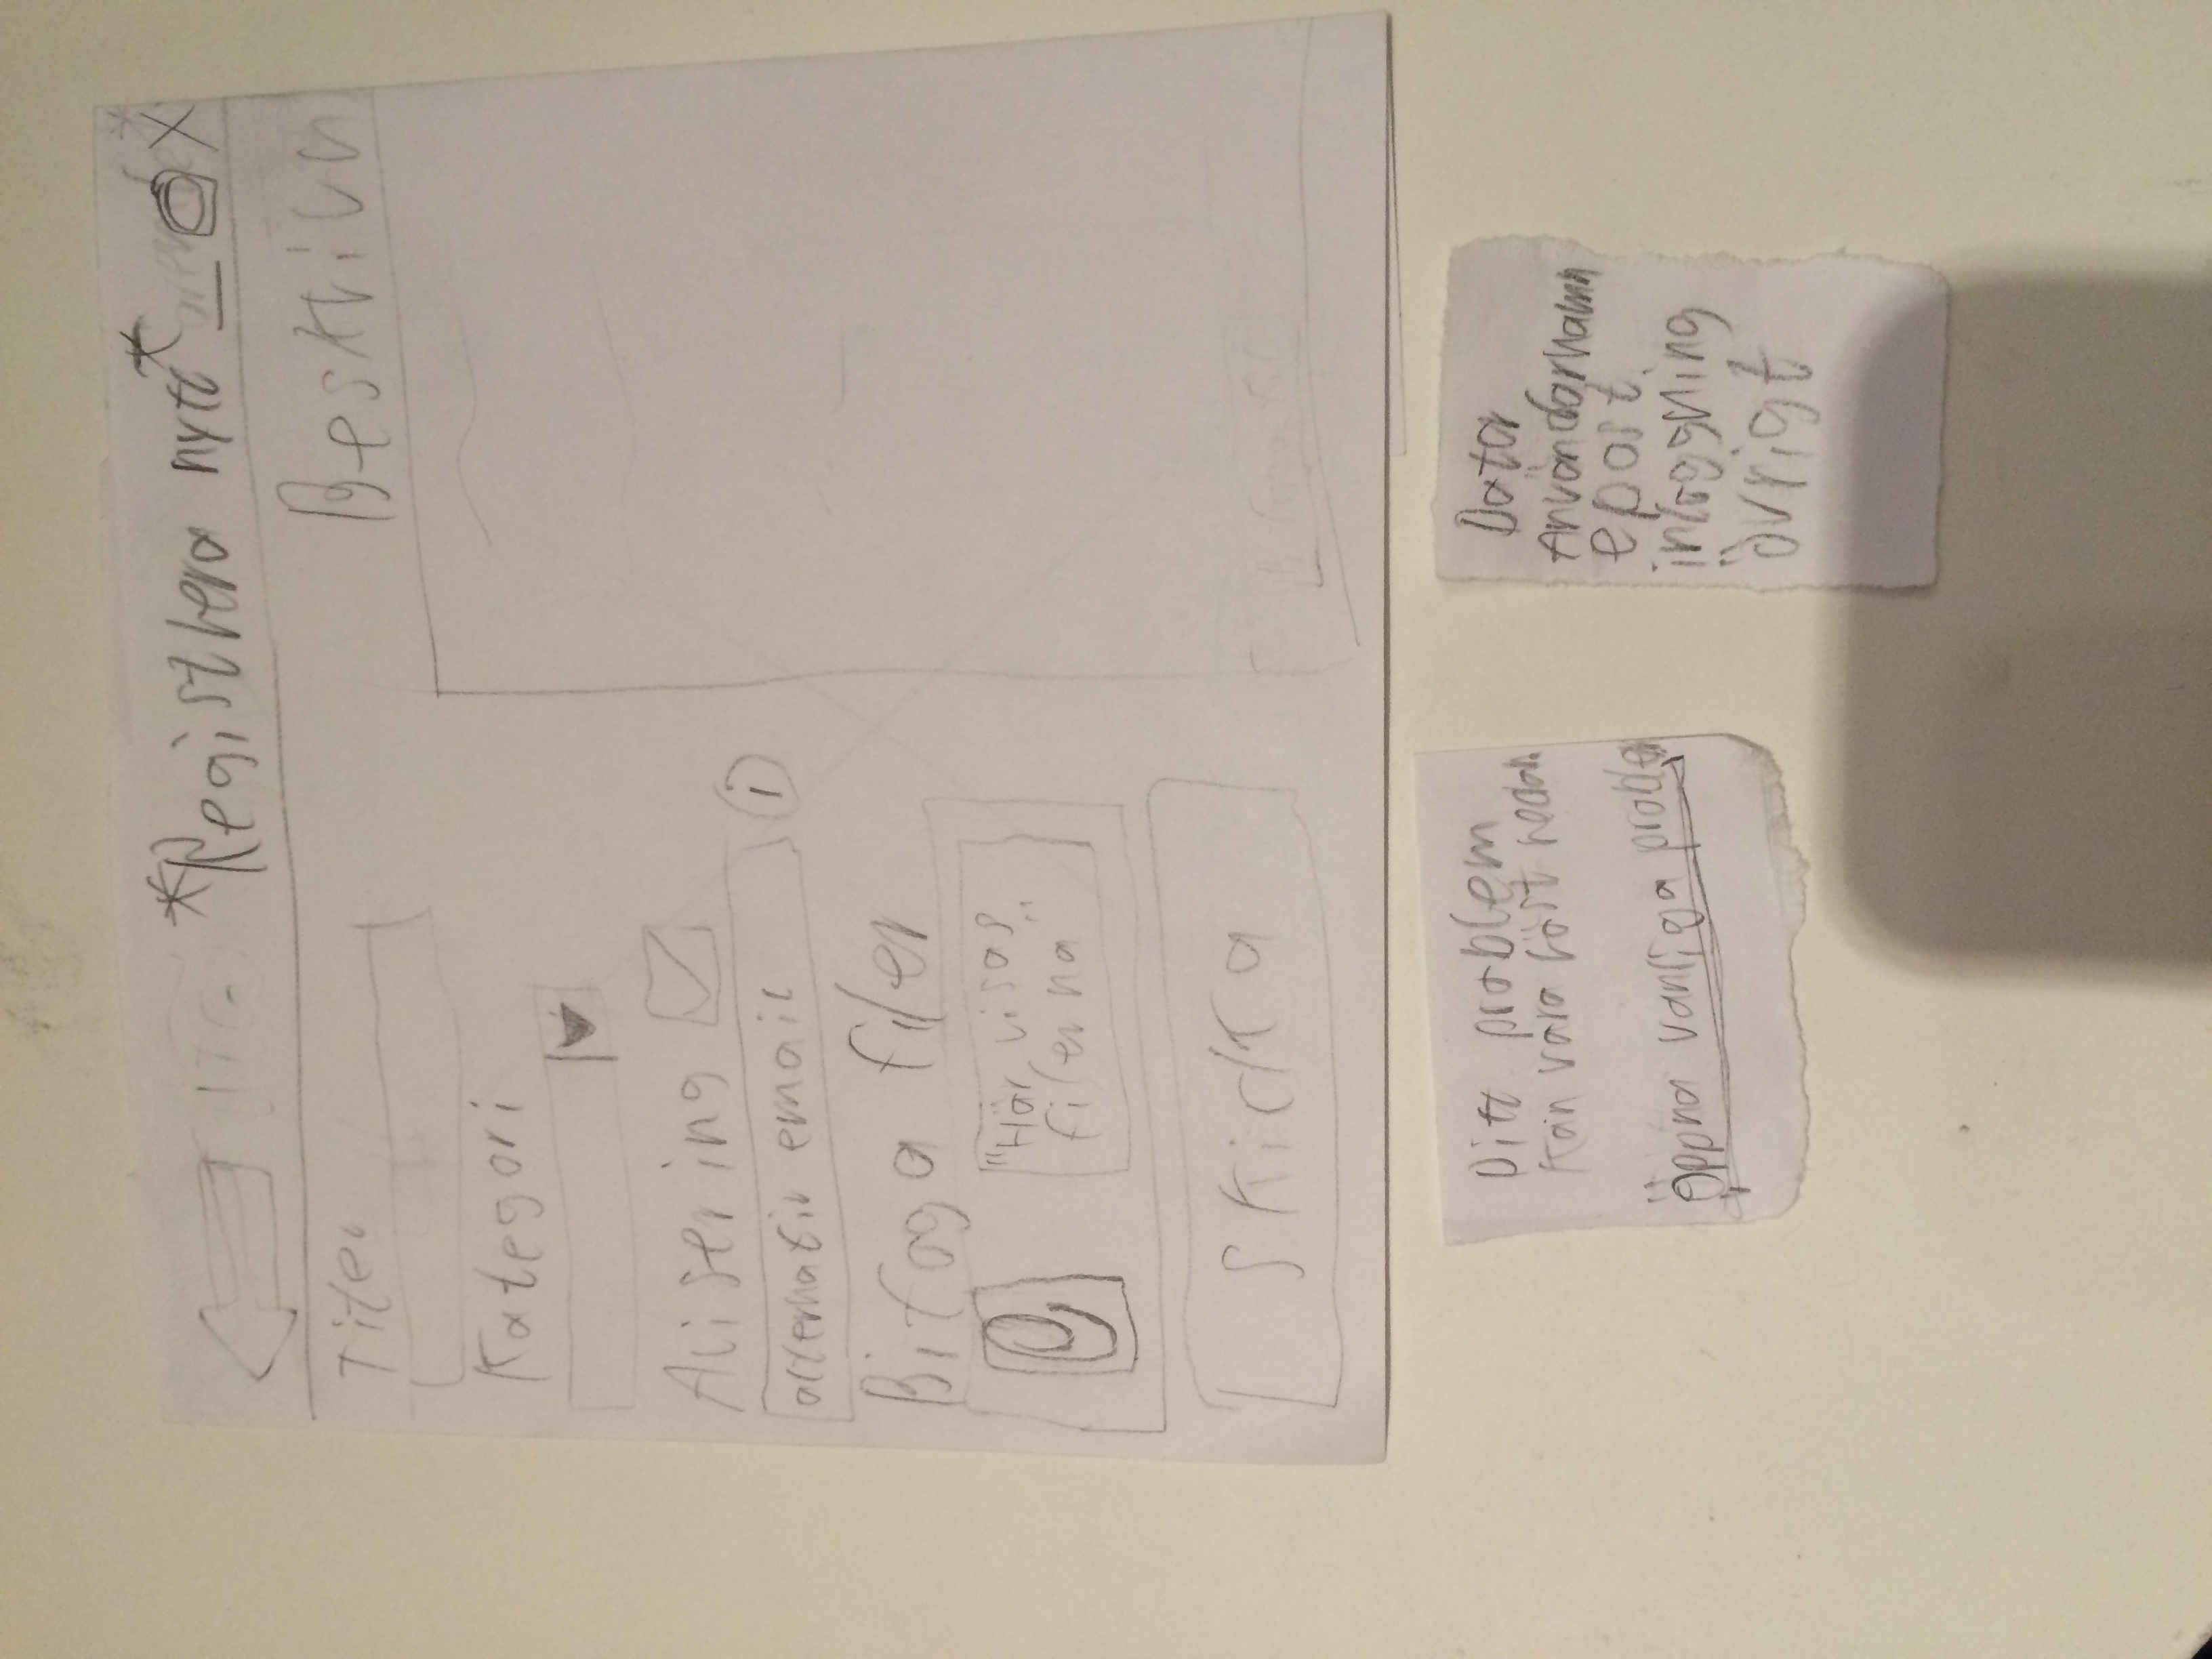 *Registrera nytt*
Titel
Beskrivn
Kategori
Avisering
alternativ email
i
Bifoga filer
"Här visas
filerna"
Skicka
Ditt problem
kan vara löst redan.
Öppna vanliga problem
Dator
Användarnamn
epost
inloggning
övrigt